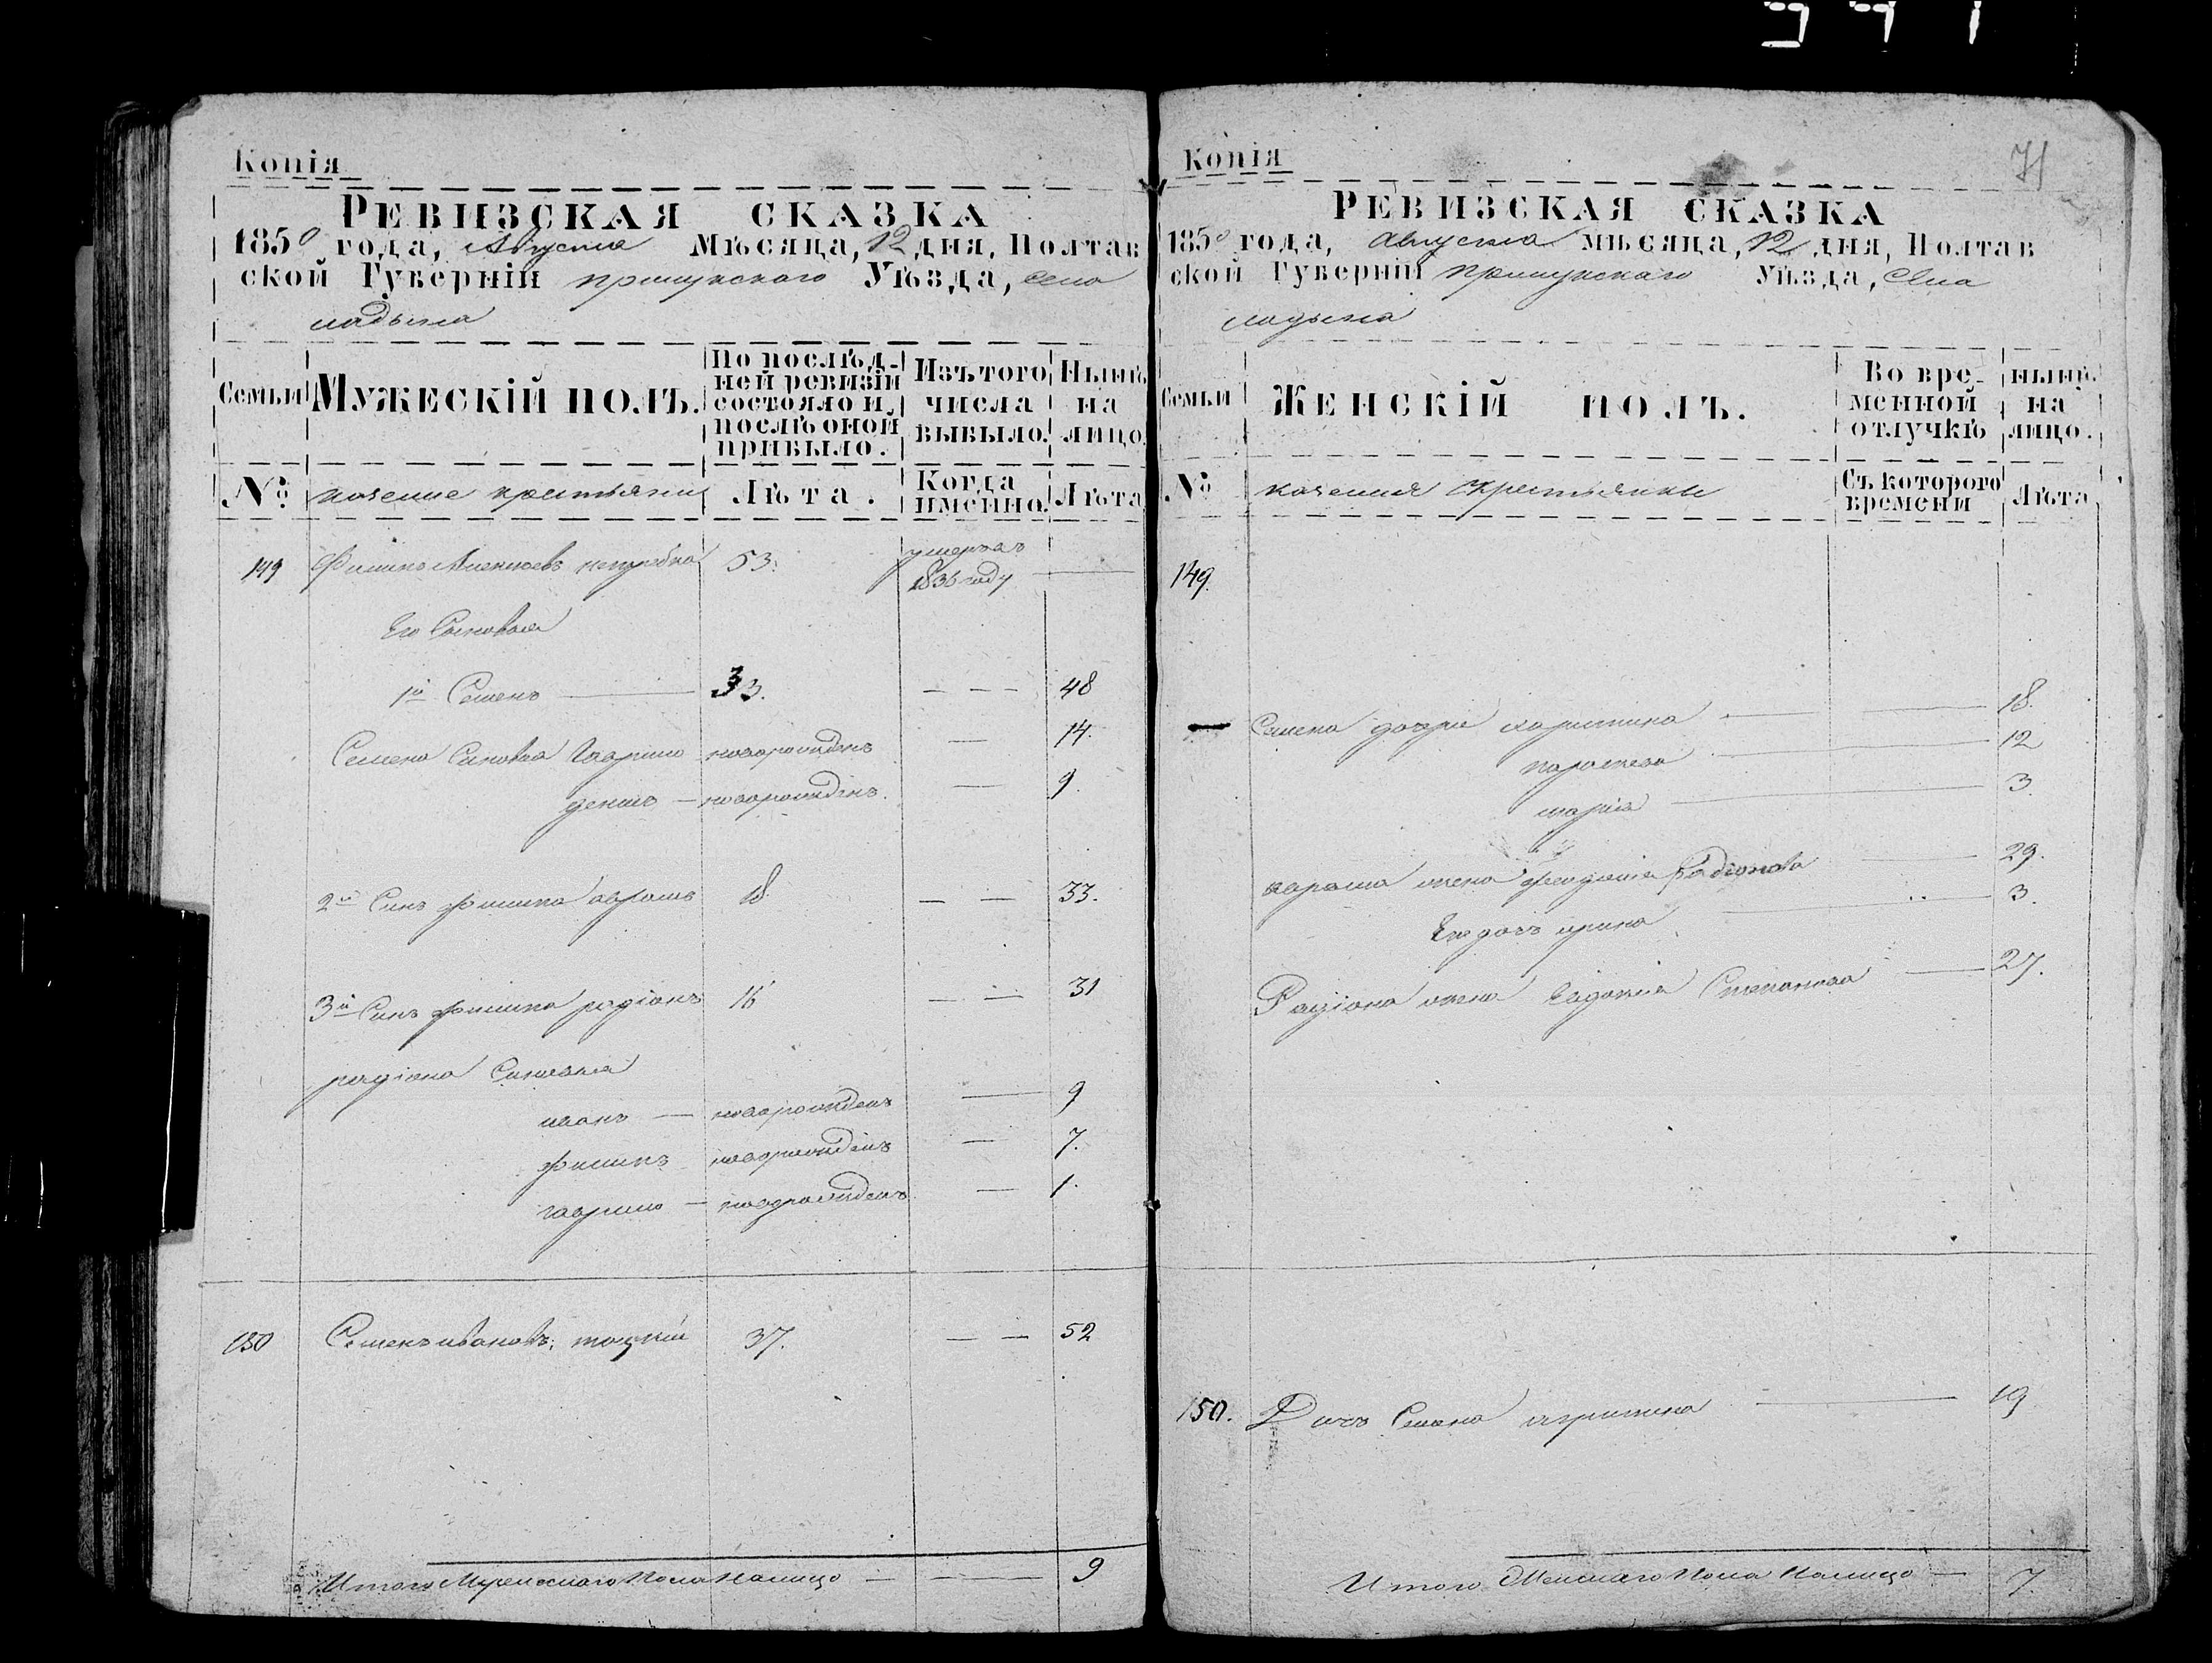 Копія
РЕВИЗСКАЯ СКАЗКА
1850 года, Августа Мѣсяца, 12 дня, Полтав
ской Губерніи прилукскаго Уѣзда, села
ладына
Семьи
МУЖЕСКІЙ ПОЛЪ.
По послѣд-
ней ревизіи
состояло и
послѣ оной
прибыло.
Изъ того
числа
выбыло.
Нынѣ
на
лицо.
№
казенные крестьяни
Лѣта.
Когда
именно.
Лѣта
149 Филипъ Алексѣевъ 53. умеръ въ
1836 году
Его Сыновья
1й Семенъ 33. 48
Семена Сыновья Гаврило новорожденъ 14.
денисъ новорожденъ. 9.
2й Сынъ филипа аврамъ 18 33.
3й Сынъ филипа радіонъ 16 31
радіона Сыновья
иванъ новорожденъ 9
филипъ новорожденъ 7.
гаврило новорожденъ 1.
150 Семенъ ивановъ; 37. 52
Итого Мужескаго Пола Налицо 9
Копія
71
РЕВИЗСКАЯ СКАЗКА
1850 года, Августа мѣсяца, 12 дня, Полтав
ской Губерніи прилукскаго Уѣзда, Села
ладына
Семьи
ЖЕНСКІЙ ПОЛЪ.
Во вре-
менной
отлучкѣ
нынѣ
на
лицо.
№
казенныя крестьянки
Съ котораго
времени
Лѣта
149.
Семена дочери харитина 18.
параскева 12
марія 3.
аврама жена Радіонова 29.
Его дочь ирина 3.
Радіона жена Евдокія Степанова 27.
150. Дочь Семена 19
Итого Женскаго Пола Налицо 7